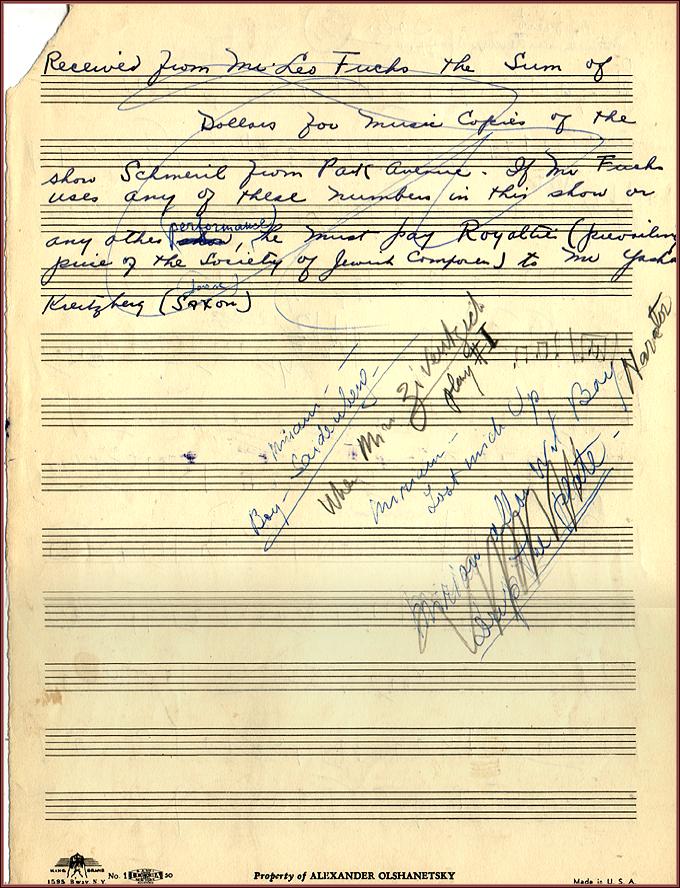 Received from Mr. Leo Fuchs the Sum of
Dollars for music Copies of the
show Schmeril from Park Avenue. If Mr Fuchs
uses any of these numbers in this show or
performance
any other show, he must pay Royalties (prevailing
price of the Society of Jewish Composers) to Mr Yasha
Kreitzberg (Saxon)
Miriam -
Boy - Saidenberg -
When Miri Ziventzich
play #1
Miriam -
Lost mich Up
Miriam
Boy
Narater
the plate -
KING BRAND
1595 B'WAY. N.Y.
No. 1
Property of ALEXANDER OLSHANETSKY
Made in U. S. A.